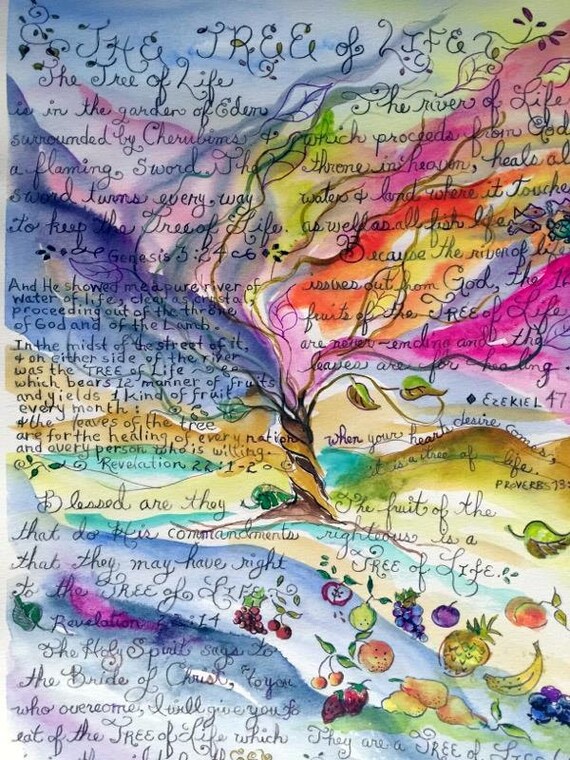 THE TREE of LIFE
The Tree of Life
is in the garden of Eden
surrounded by Cherubims &
a flaming sword. The
sword turns every way
to keep the Tree of Life.
Genesis 3:24
And He showed me a pure river of
water of life, clear as crystal,
proceeding out of the throne
of God and of the Lamb.
In the midst of the street of it,
& on either side of the river
was the TREE of Life
which bears 12 manner of fruits
and yields 1 kind of fruit
every month:
& the leaves of the tree
are for the healing of every nation
and every person who is willing.
Revelation 22:1-2
Blessed are they
that do His commandments
that they may have right
to the TREE of LIFE.
Revelation 22:14
The Holy Spirit says to
the Bride of Christ, to you
who overcome, I will give you to
eat of the TREE of Life which
The river of Life
which proceeds from God
throne in heaven, heals al
water & land where it Touche
as well as all fish life.
Because the river of life
issues out from God, the
fruits of the TREE of Life
are never-ending and the
leaves are for healing.
EZEKIEL 47
When your heart's desire comes,
it is a tree of life.
PROVERBS 13:
The fruit of the
righteous is a
TREE of LIFE.
They are a TREE of LIFE